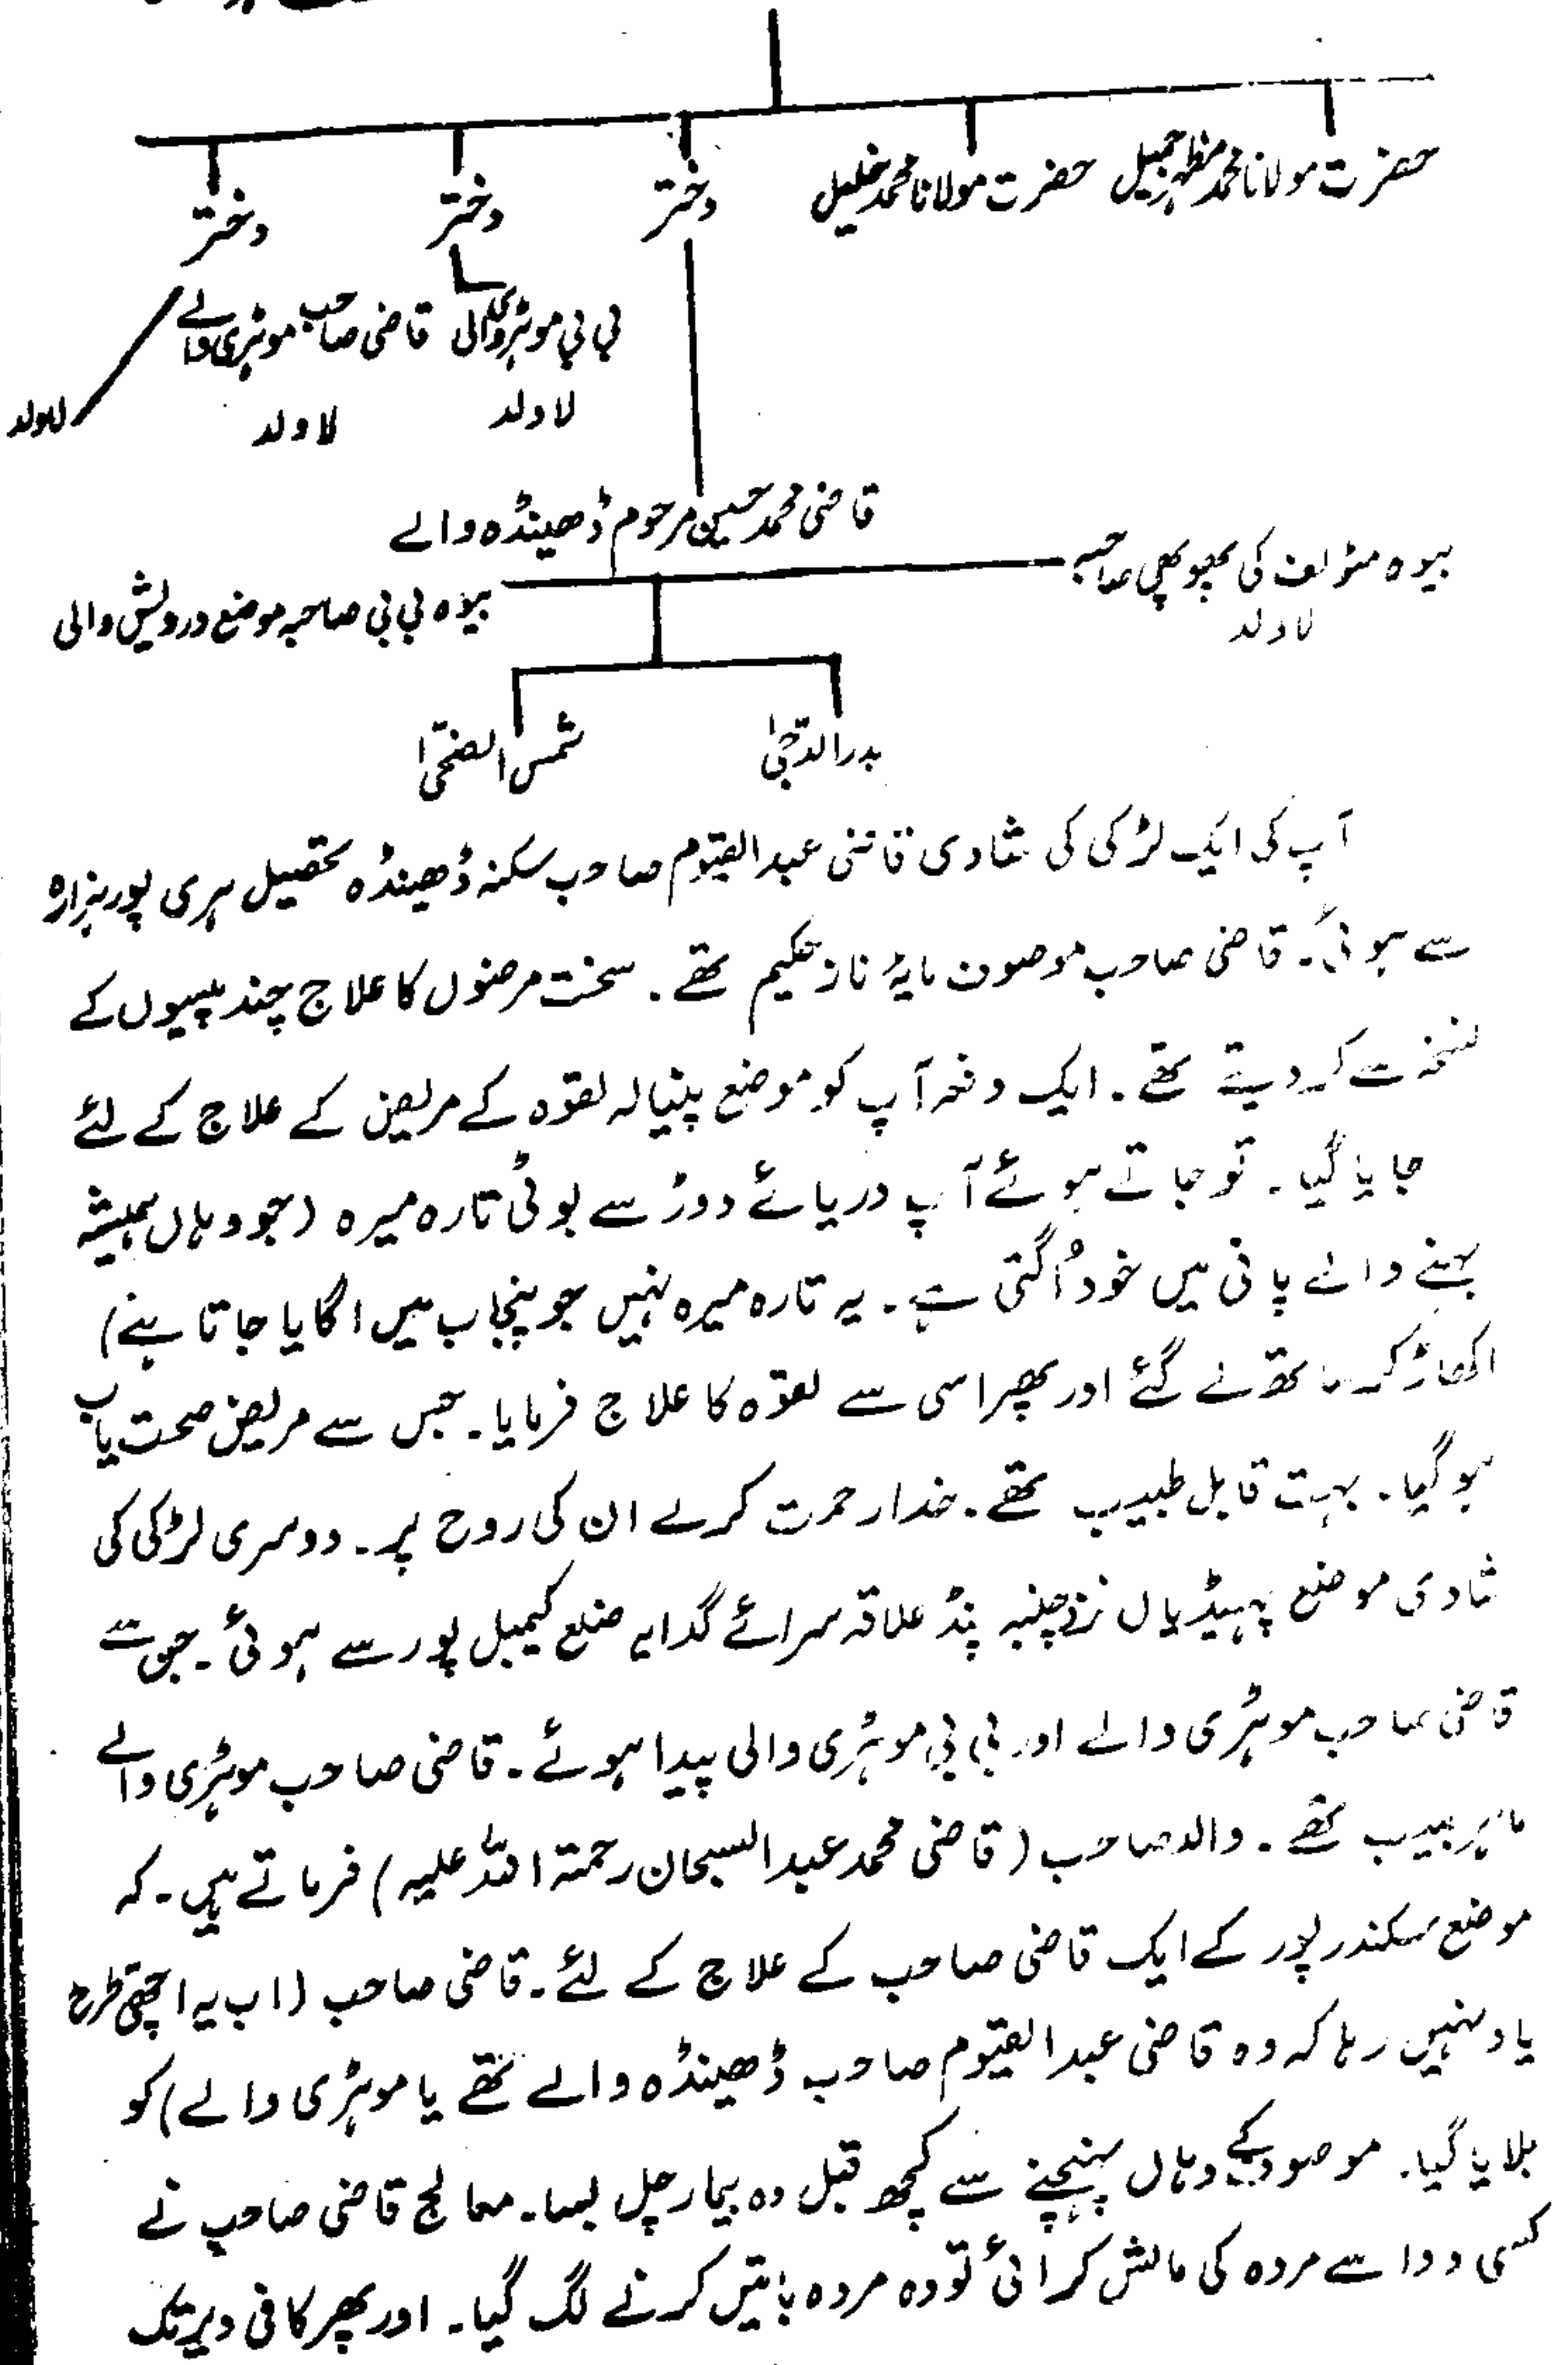 حضرت مولانا محمد مظہر جمیل
حضرت مولانا محمد خلیل
دختر
دختر
دختر
بی بی موہڑی والی
لاولد
قاضی صاحب موہڑی والے
لاولد
لاولد
قاضی محمد حسین مرحوم ڈھینڈہ والے
بیوہ مؤلف کی پھوپھی صاحبہ
لاولد
بیوہ بی بی صاحبہ موضع درویش والی
بدرالدّجیٰ
شمس الضحیٰ
آپ کی ایک لڑکی کی شادی قاضی عبدالقیوم صاحب سکنہ ڈھینڈہ تحصیل ہری پور ہزارہ
سے ہوئی۔ قاضی صاحب موصوف مایۂ ناز حکیم تھے۔ سخت مرضوں کا علاج چند پیسوں کے
نسخہ سے کر دیتے تھے۔ ایک دفعہ آپ کو موضع پنیالہ لقوہ کے مریض کے علاج کے لئے
جایا گیا۔ تو جاتے ہوئے آپ دریائے دوڑ سے بوٹی تارہ میرہ (جو وہاں ہمیشہ
بہنے والے پانی میں خود اُگتی ہے۔ یہ تارہ میرہ نہیں جو پنجاب میں اگایا جاتا ہے)
اکھاڑ کر ساتھ لے گئے اور پھر اسی سے لقوہ کا علاج فرمایا۔ جس سے مریض صحت یاب
ہو گیا۔ بہت قابل طبیب تھے۔ خدا رحمت کرے ان کی روح پر۔ دوسری لڑکی کی
شادی موضع پہیڈیال نزد چنبہ پنڈ علاقہ سرائے گدائی ضلع کیمبل پور سے ہوئی۔ جس سے
قاضی صاحب موہڑی والے اور بی بی موہڑی والی پیدا ہوئے۔ قاضی صاحب موہڑی والے
ماہر طبیب تھے۔ والد صاحب (قاضی محمد عبدالسبحان رحمۃ اللہ علیہ) فرماتے ہیں۔ کہ
موضع سکندر پور کے ایک قاضی صاحب کے علاج کے لئے۔ قاضی صاحب (اب یہ اچھی طرح
یاد نہیں رہا کہ وہ قاضی عبدالقیوم صاحب ڈھینڈہ والے تھے یا موہڑی والے) کو
بلایا گیا۔ موصوف کے وہاں پہنچنے سے کچھ قبل وہ بیمار چل بسا۔ معالج قاضی صاحب نے
کسی دوا سے مردہ کی مالش کرائی تو وہ مردہ باتیں کرنے لگ گیا۔ اور پھر کافی دیر تک